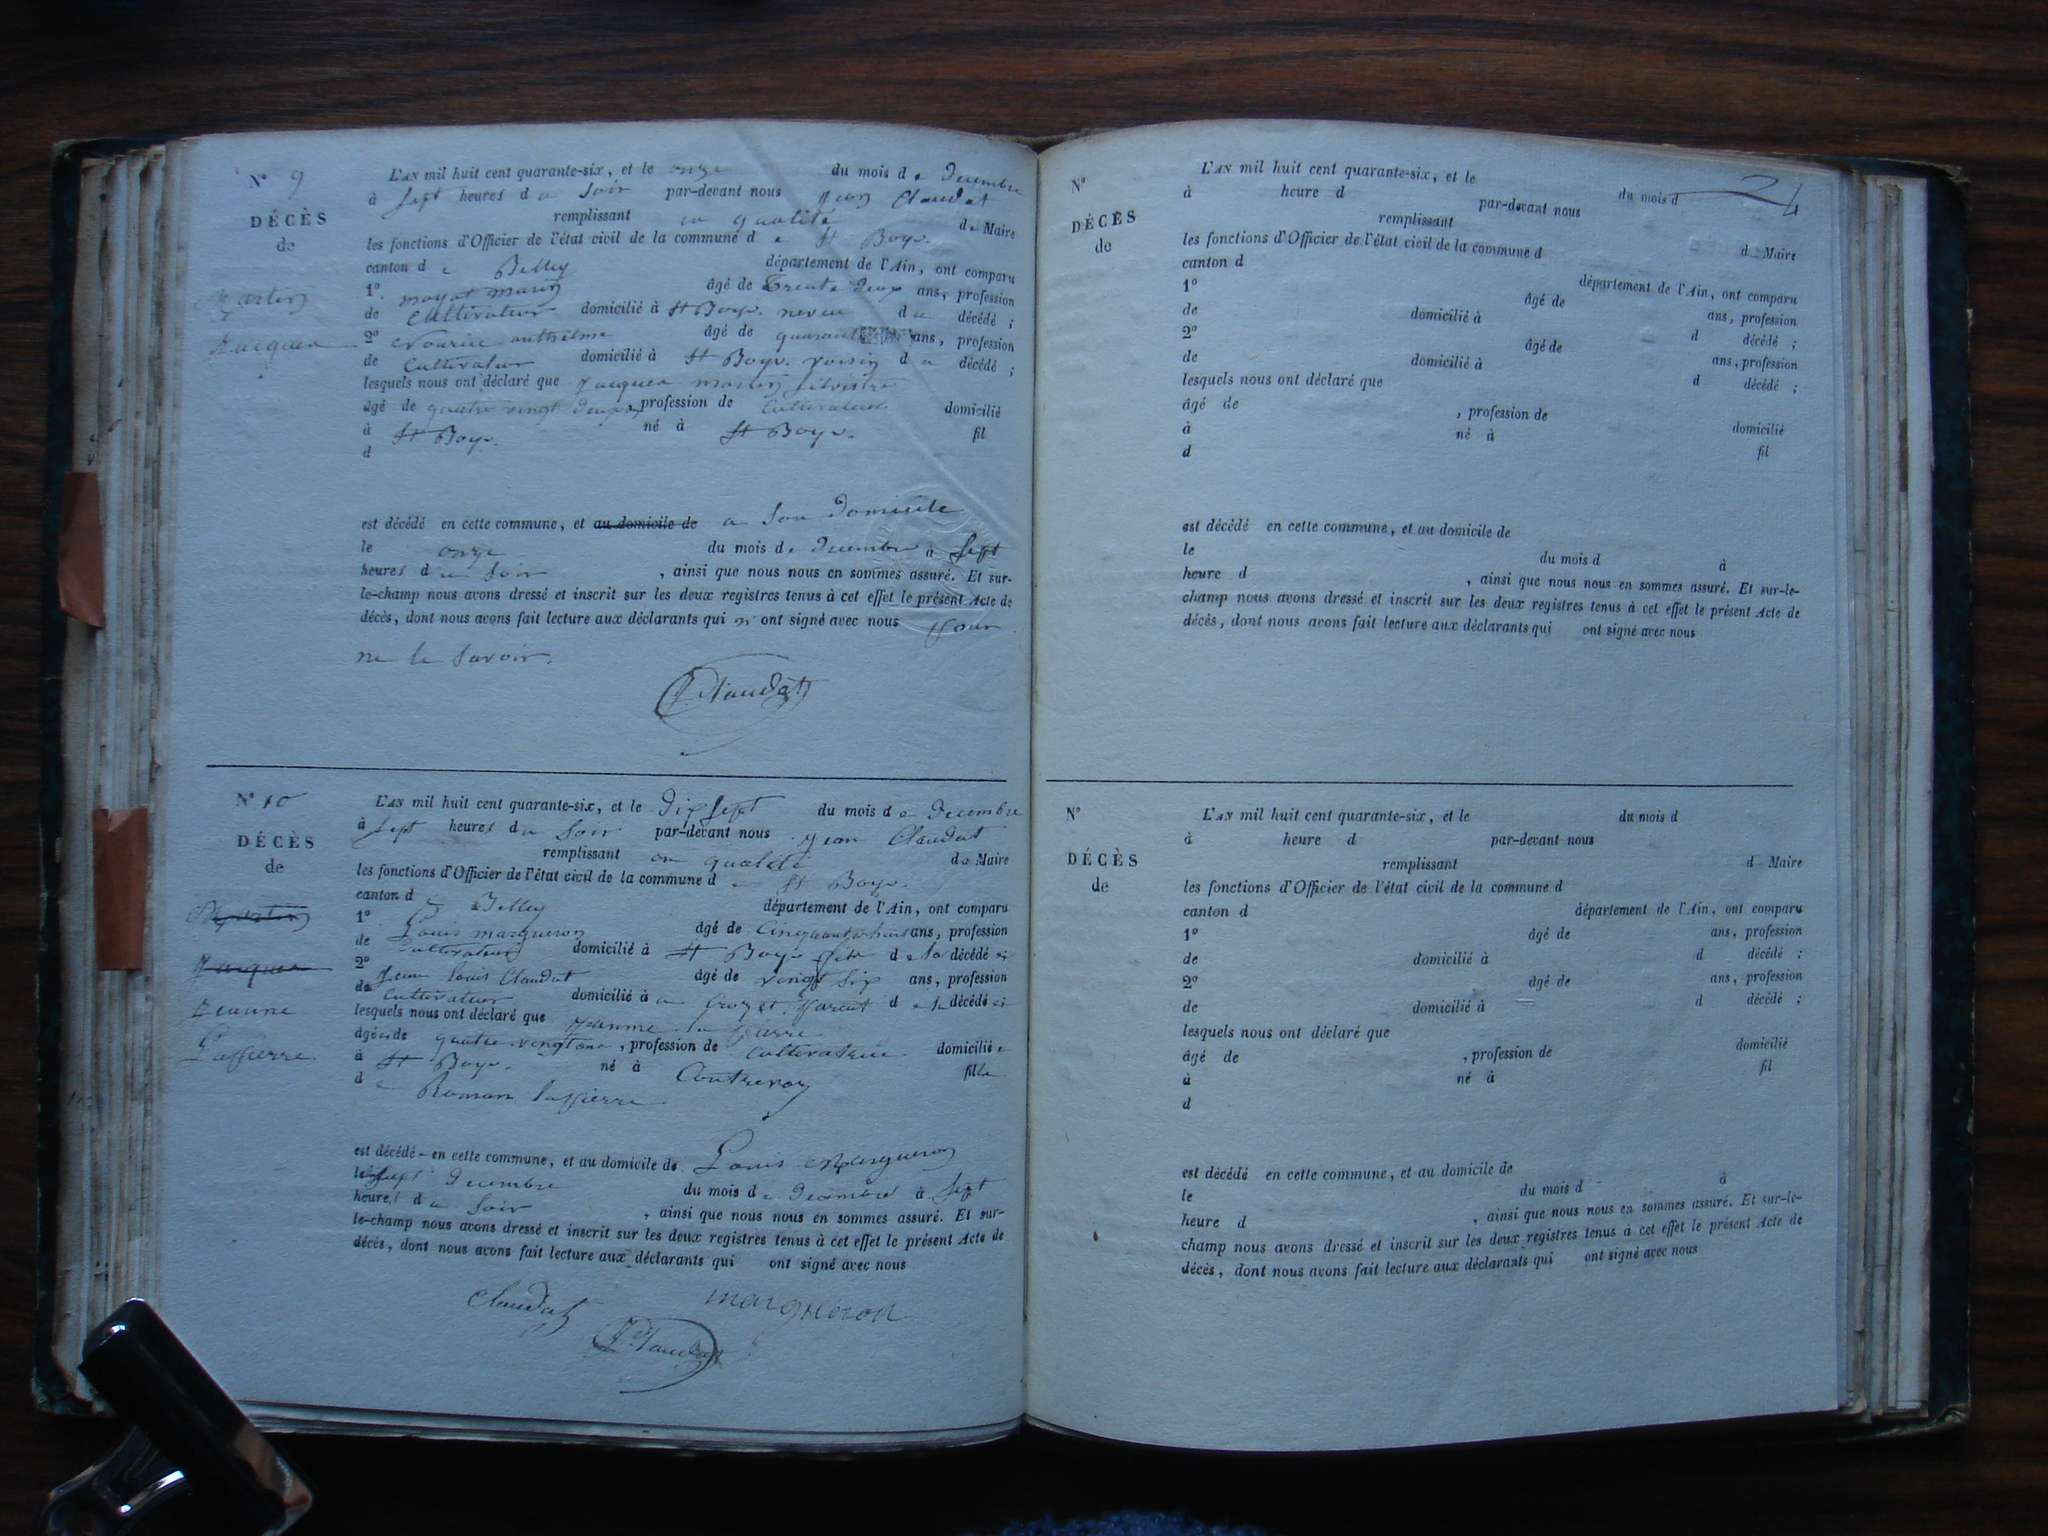 N° 9
DÉCÈS
de
Martin
Jacques
L'AN mil huit cent quarante-six, et le onze du mois de Decembre
à sept heures du soir par-devant nous Jean Claudat
remplissant en qualité de Maire
les fonctions d'Officier de l'état civil de la commune de St Boys.
canton de Belley département de l'Ain, ont comparu
1° âgé de trente deux ans, profession
de cultivateur domicilié à St Boys. neveu du décédé ;
2° anthelme âgé de quarante ans, profession
de cultivateur domicilié à St Boys. voisin du décédé ;
lesquels nous ont déclaré que Jacques
âgé de quatre vingt deux, profession de cultivateur domicilié
à St Boys. né à St Boys. fil
d
est décédé en cette commune, et au domicile de a son domicile
le onze du mois de decembre à sept
heures du soir, ainsi que nous nous en sommes assuré. Et sur-
le-champ nous avons dressé et inscrit sur les deux registres tenus à cet effet le présent Acte de
décès, dont nous avons fait lecture aux déclarants qui n'ont signé avec nous pour
ne le savoir.
Claudat
N° 10
DÉCÈS
de
Martin
Jacques
Jeanne
Lassierre
L'AN mil huit cent quarante-six, et le dix sept du mois de Decembre
à sept heures du soir par-devant nous Jean Claudat
remplissant en qualité de Maire
les fonctions d'Officier de l'état civil de la commune de St Boys.
canton de Belley département de l'Ain, ont comparu
1° Louis margueron âgé de cinquante huit ans, profession
de cultivateur domicilié à St Boys de la décédé
2° Jean Louis Claudat âgé de vingt six ans, profession
de cultivateur domicilié à décédé
lesquels nous ont déclaré que Jeanne
âgée de quatre vingt, profession de cultivatrice domicilié e
à St Boys. né à Contrevoz fille
de Roman Lassierre
est décédé e en cette commune, et au domicile de Louis Margueron
le sept decembre du mois de decembre à sept
heures du soir, ainsi que nous nous en sommes assuré. Et sur-
le-champ nous avons dressé et inscrit sur les deux registres tenus à cet effet le présent Acte de
décès, dont nous avons fait lecture aux déclarants qui ont signé avec nous
claudat margueron
Claudat
24
N°
DÉCÈS
de
L'AN mil huit cent quarante-six, et le du mois d
à heure d par-devant nous
remplissant d Maire
les fonctions d'Officier de l'état civil de la commune d
canton d département de l'Ain, ont comparu
1° âgé de ans, profession
de domicilié à d décédé ;
2° âgé de ans, profession
de domicilié à d décédé ;
lesquels nous ont déclaré que
âgé de , profession de domicilié
à né à fil
d
est décédé en cette commune, et au domicile de
le du mois d à
heure d , ainsi que nous nous en sommes assuré. Et sur-le-
champ nous avons dressé et inscrit sur les deux registres tenus à cet effet le présent Acte de
décès, dont nous avons fait lecture aux déclarants qui ont signé avec nous
N°
DÉCÈS
de
L'AN mil huit cent quarante-six, et le du mois d
à heure d par-devant nous
remplissant d Maire
les fonctions d'Officier de l'état civil de la commune d
canton d département de l'Ain, ont comparu
1° âgé de ans, profession
de domicilié à d décédé ;
2° âgé de ans, profession
de domicilié à d décédé ;
lesquels nous ont déclaré que
âgé de , profession de domicilié
à né à fil
d
est décédé en cette commune, et au domicile de
le du mois d à
heure d , ainsi que nous nous en sommes assuré. Et sur-le-
champ nous avons dressé et inscrit sur les deux registres tenus à cet effet le présent Acte de
décès, dont nous avons fait lecture aux déclarants qui ont signé avec nous